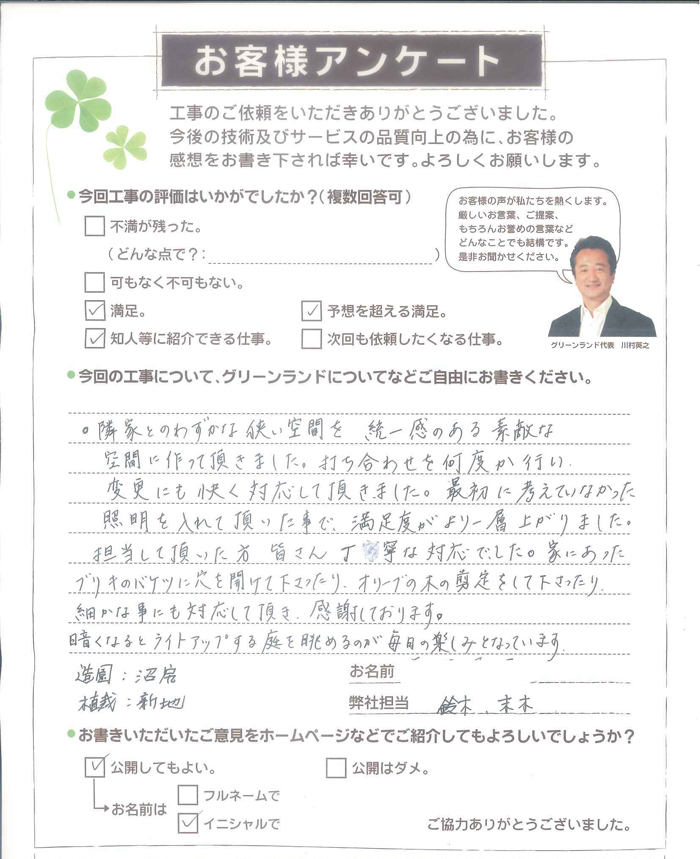 お客様アンケート
工事のご依頼をいただきありがとうございました。
今後の技術及びサービスの品質向上の為に、お客様の
感想をお書き下されば幸いです。よろしくお願いします。
今回工事の評価はいかがでしたか？（複数回答可）
不満が残った。
（どんな点で？：　）
可もなく不可もない。
満足。
予想を超える満足。
知人等に紹介できる仕事。
次回も依頼したくなる仕事。
お客様の声が私たちを熱くします。
厳しいお言葉、ご提案、
もちろんお誉めの言葉など
どんなことでも結構です。
是非お聞かせください。
グリーンランド代表　川村英之
今回の工事について、グリーンランドについてなどご自由にお書きください。
。隣家とのわずかな狭い空間を 統一感のある素敵な
空間に作って頂きました。打ち合わせを何度か行い、
変更にも快く対応して頂きました。最初に考えていなかった
照明を入れて頂いた事で、満足度がより一層上がりました。
担当して頂いた方 皆さん 丁寧な対応でした。家にあった
ブリキのバケツに穴を開けて下さったり、オリーブの木の剪定をして下さったり、
細かな事にも対応して頂き、感謝しております。
暗くなるとライトアップする庭を眺めるのが毎日の楽しみとなっています。
造園：沼宕
植栽：新地
お名前
弊社担当 鈴木、末木
お書きいただいたご意見をホームページなどでご紹介してもよろしいでしょうか？
公開してもよい。
公開はダメ。
お名前は
フルネームで
イニシャルで
ご協力ありがとうございました。